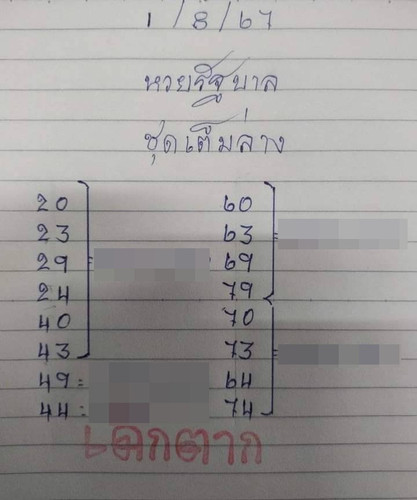 1 / 8 / 67
หวยรัฐบาล
ชุดเต็มล่าง
20
23
29 =
24
40
43
49 =
44 =
60
63 =
69
79
70
73 =
64
74
เดกตาก